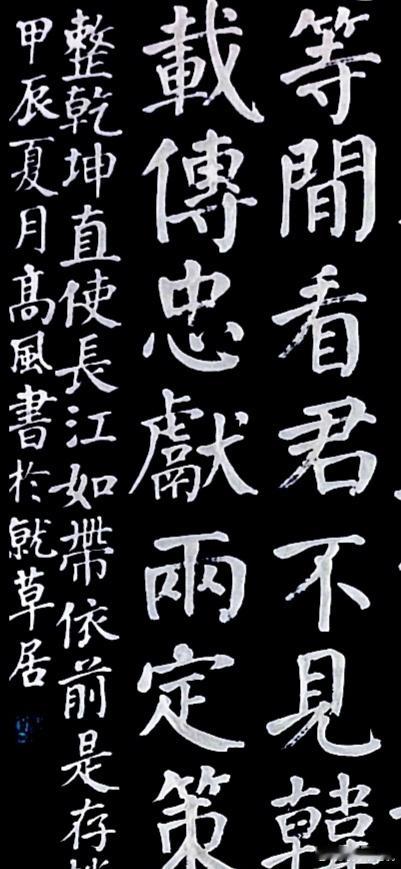 等間看君不見韓
載傳忠獻兩定策
整乾坤直使長江如帶依前是存
甲辰夏月髙風書於就草居